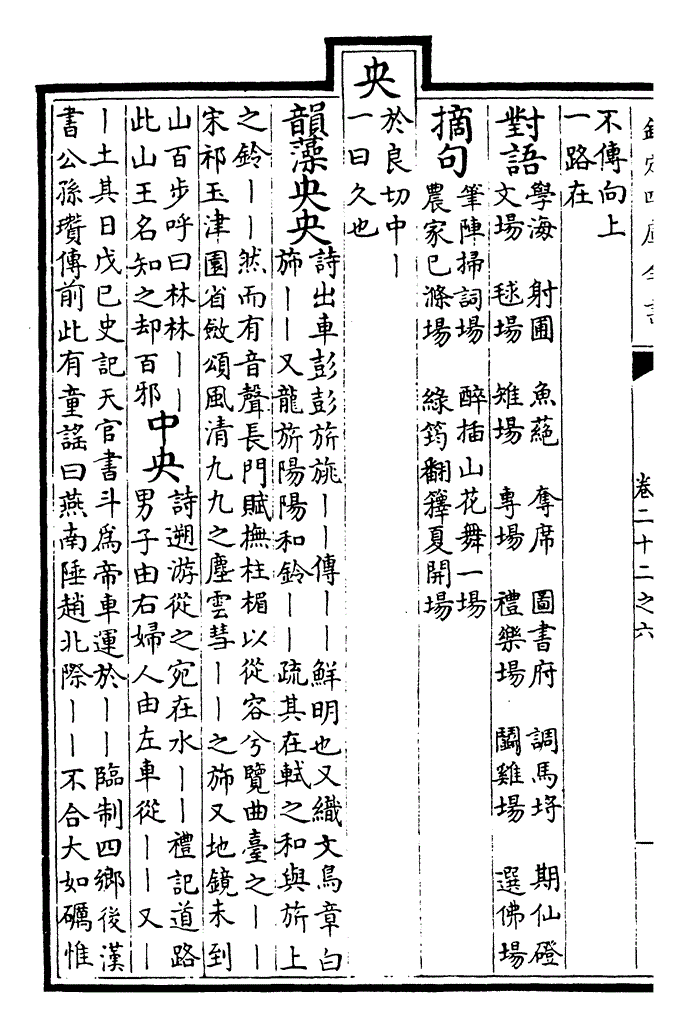 欽定四庫全書
卷二十二之六
不傳向上
一路在
對語
學海 射圃 魚葩 奪席 圖書府 調馬埒 期仙磴
文場 毬場 雉場 專場 禮樂場 鬭雞場 選佛場
摘句
筆陣掃詞場 醉插山花舞一場
農家已滌場 綠筠翻籜夏開場
央
於良切中丨
一曰久也
韻藻央央
詩出車彭彭旂旐丨丨傳丨丨鮮明也又織文鳥章白
斾丨丨又龍旂陽陽和鈴丨丨疏其在軾之和與旂上
之鈴丨丨然而有音聲長門賦撫柱楣以從容兮覽曲臺之丨丨
宋祁玉津園省斂頌風清九九之塵雲彗丨丨之斾又地鏡未到
山百步呼曰林林丨丨
此山王名知之却百邪
中央
詩遡游從之宛在水丨丨禮記道路
男子由右婦人由左車從丨丨又丨
丨土其日戊己史記天官書斗爲帝車運於丨丨臨制四鄉後漢
書公孫瓚傳前此有童謠曰燕南陲趙北際丨丨不合大如礪惟